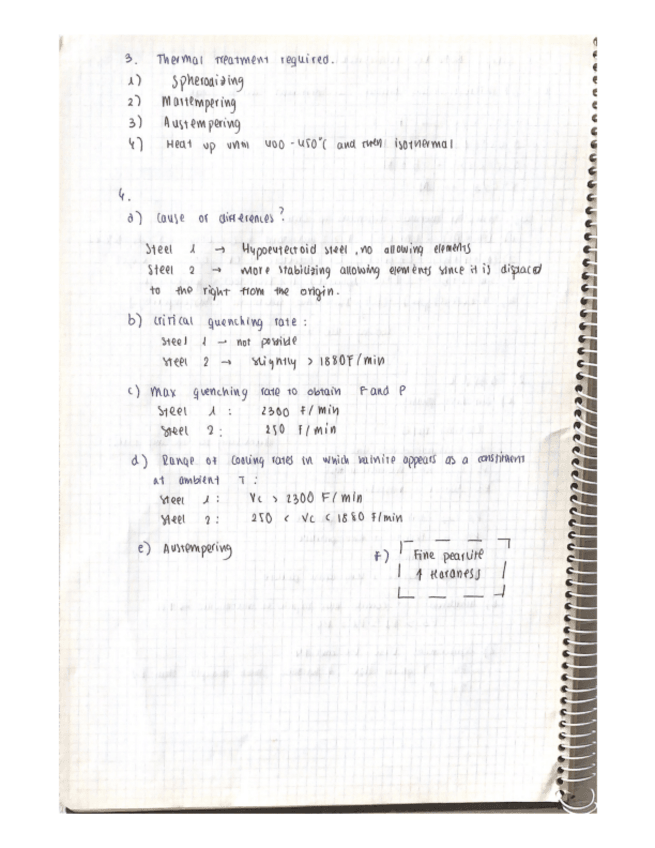 3. Thermal treatment required.
1) Spheroidizing
2) Martempering
3) Austempering
4) Heat up until 400 - 450°C and then isothermal
4.
a) Cause of differences?
Steel 1 → Hypoeutectoid steel, no allowing elements
Steel 2 → more stabilizing allowing elements since it is displaced
to the right from the origin.
b) critical quenching rate:
Steel 1 → not possible
Steel 2 → slightly > 1880 F/min
c) Max quenching rate to obtain F and P
Steel 1: 2300 F/min
Steel 2: 250 F/min
d) Range of cooling rates in which bainite appears as a constituent
at ambient T:
Steel 1: Vc > 2300 F/min
Steel 2: 250 < Vc < 1880 F/min
e) Austempering
f) Fine pearlite
↑ Hardness